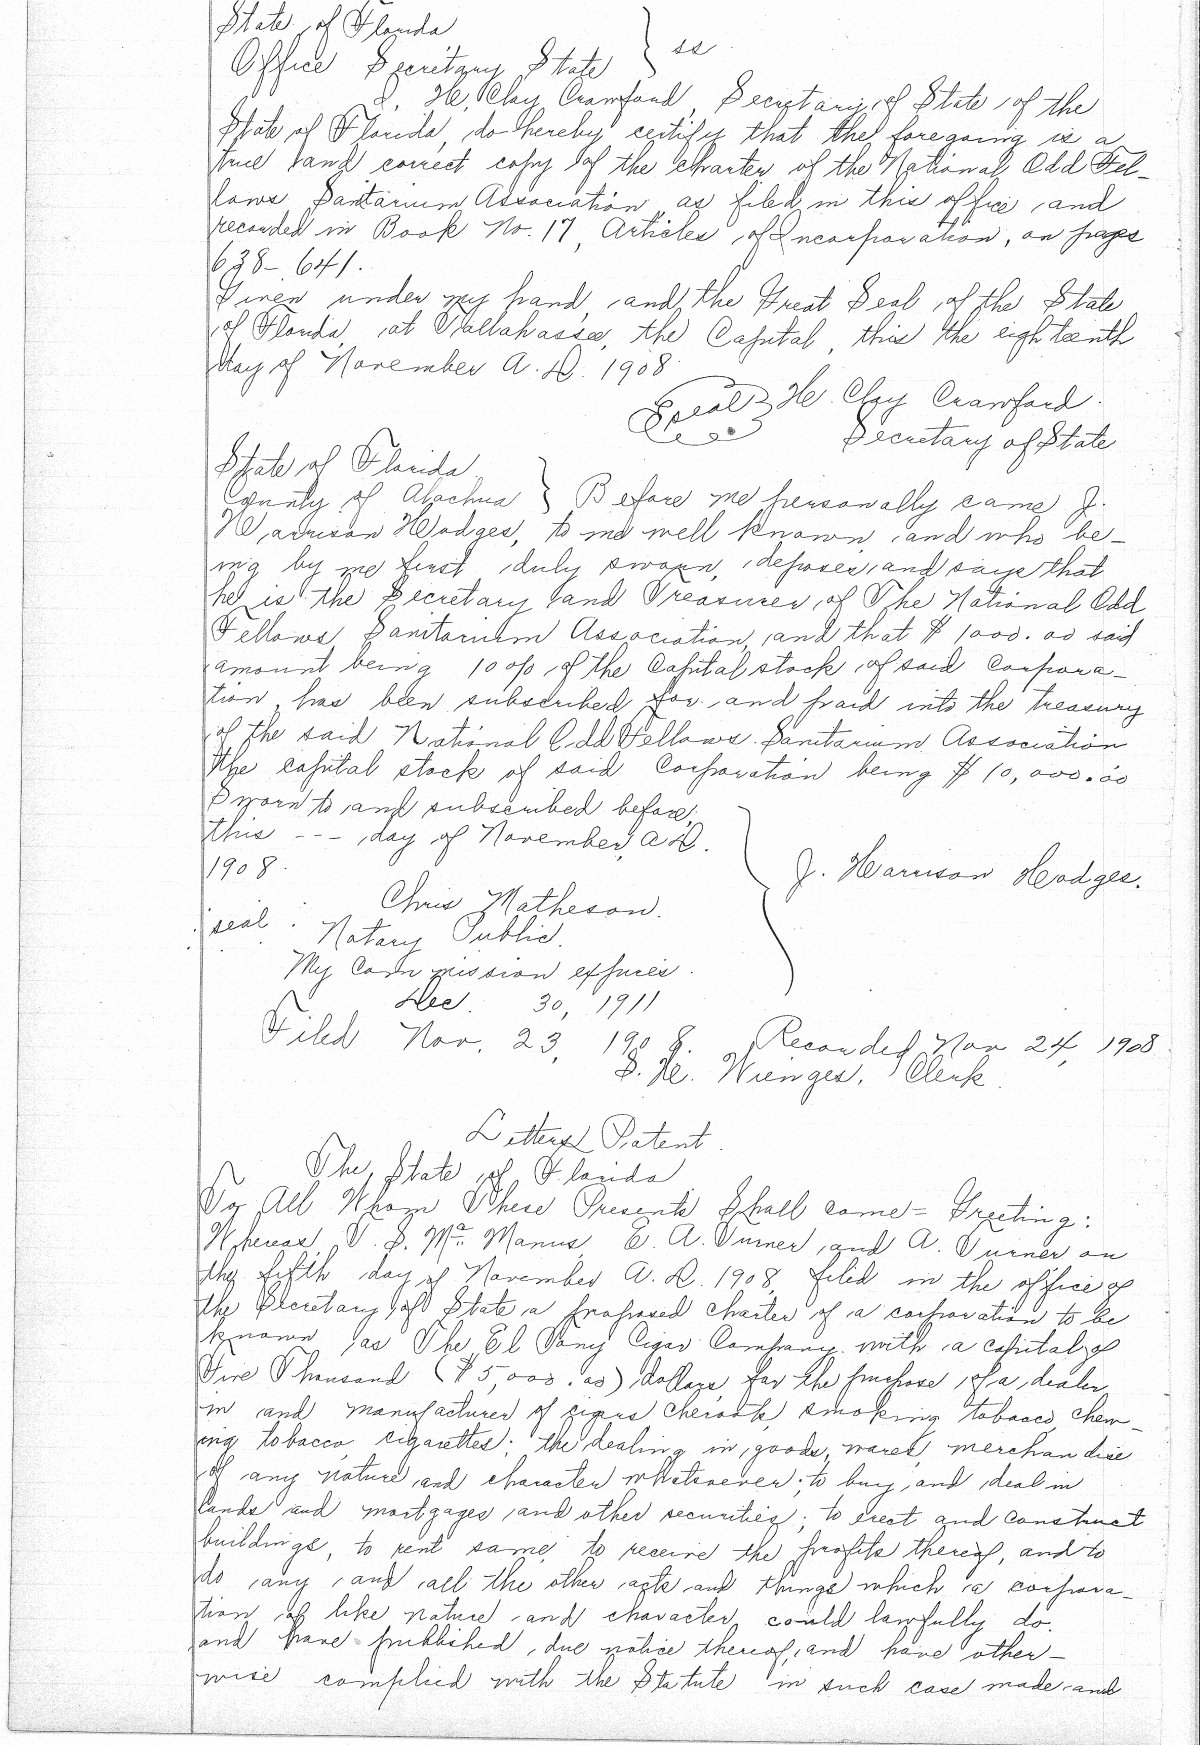 State of Florida
Office Secretary State } ss
I, H. Clay Crawford, Secretary of State of the
State of Florida, do hereby certify that the foregoing is a
true and correct copy of the charter of the National Odd Fel-
lows Sanitarium Association, as filed in this office, and
recorded in Book No. 17, Articles of Incorporation, on pages
638-641.
Given under my hand, and the Great Seal of the State
of Florida, at Tallahassee, the Capital, this the eighteenth
day of November A. D. 1908
Seal H. Clay Crawford.
Secretary of State
State of Florida
County of Alachua } Before me personally came J.
Harrison Hodges, to me well known, and who be-
ing by me first duly sworn, deposes and says that
he is the Secretary and Treasurer of The National Odd
Fellows Sanitarium Association, and that $1000.00 said
amount being 10% of the Capital stock of said Corpora-
tion, has been subscribed for and paid into the treasury
of the said National Odd Fellows Sanitarium Association
the capital stock of said Corporation being $10,000.00
Sworn to and subscribed before,
this --- day of November, A D.
1908.
J. Harrison Hodges.
Chris Matheson.
seal. Notary Public.
My Commission expires.
Dec. 30, 1911
Filed Nov. 23, 1908. Recorded Nov 24, 1908
S. H. Wienges, Clerk.
Letters Patent.
The State of Florida
To All Whom These Presents Shall come = Greeting:
Whereas, T. S. Mc Manus, E. A. Turner, and A. Turner on
the fifth day of November A. D. 1908, filed in the office of
the Secretary of State a proposed charter of a corporation to be
known as The El Tony Cigar Company with a capital of
Five Thousand ($5,000.00) dollars, for the purpose of a dealer
in and manufacturer of cigars cheroots, smoking tobacco, chew-
ing tobacco, cigarettes; the dealing in goods, wares, merchandise
of any nature and character whatsoever; to buy and deal in
lands and mortgages and other securities; to erect and construct
buildings, to rent same, to receive the profits thereof, and to
do any and all the other acts and things which a corpora-
tion of like nature and character could lawfully do.
and have published due notice thereof, and have other-
wise complied with the Statute in such case made and